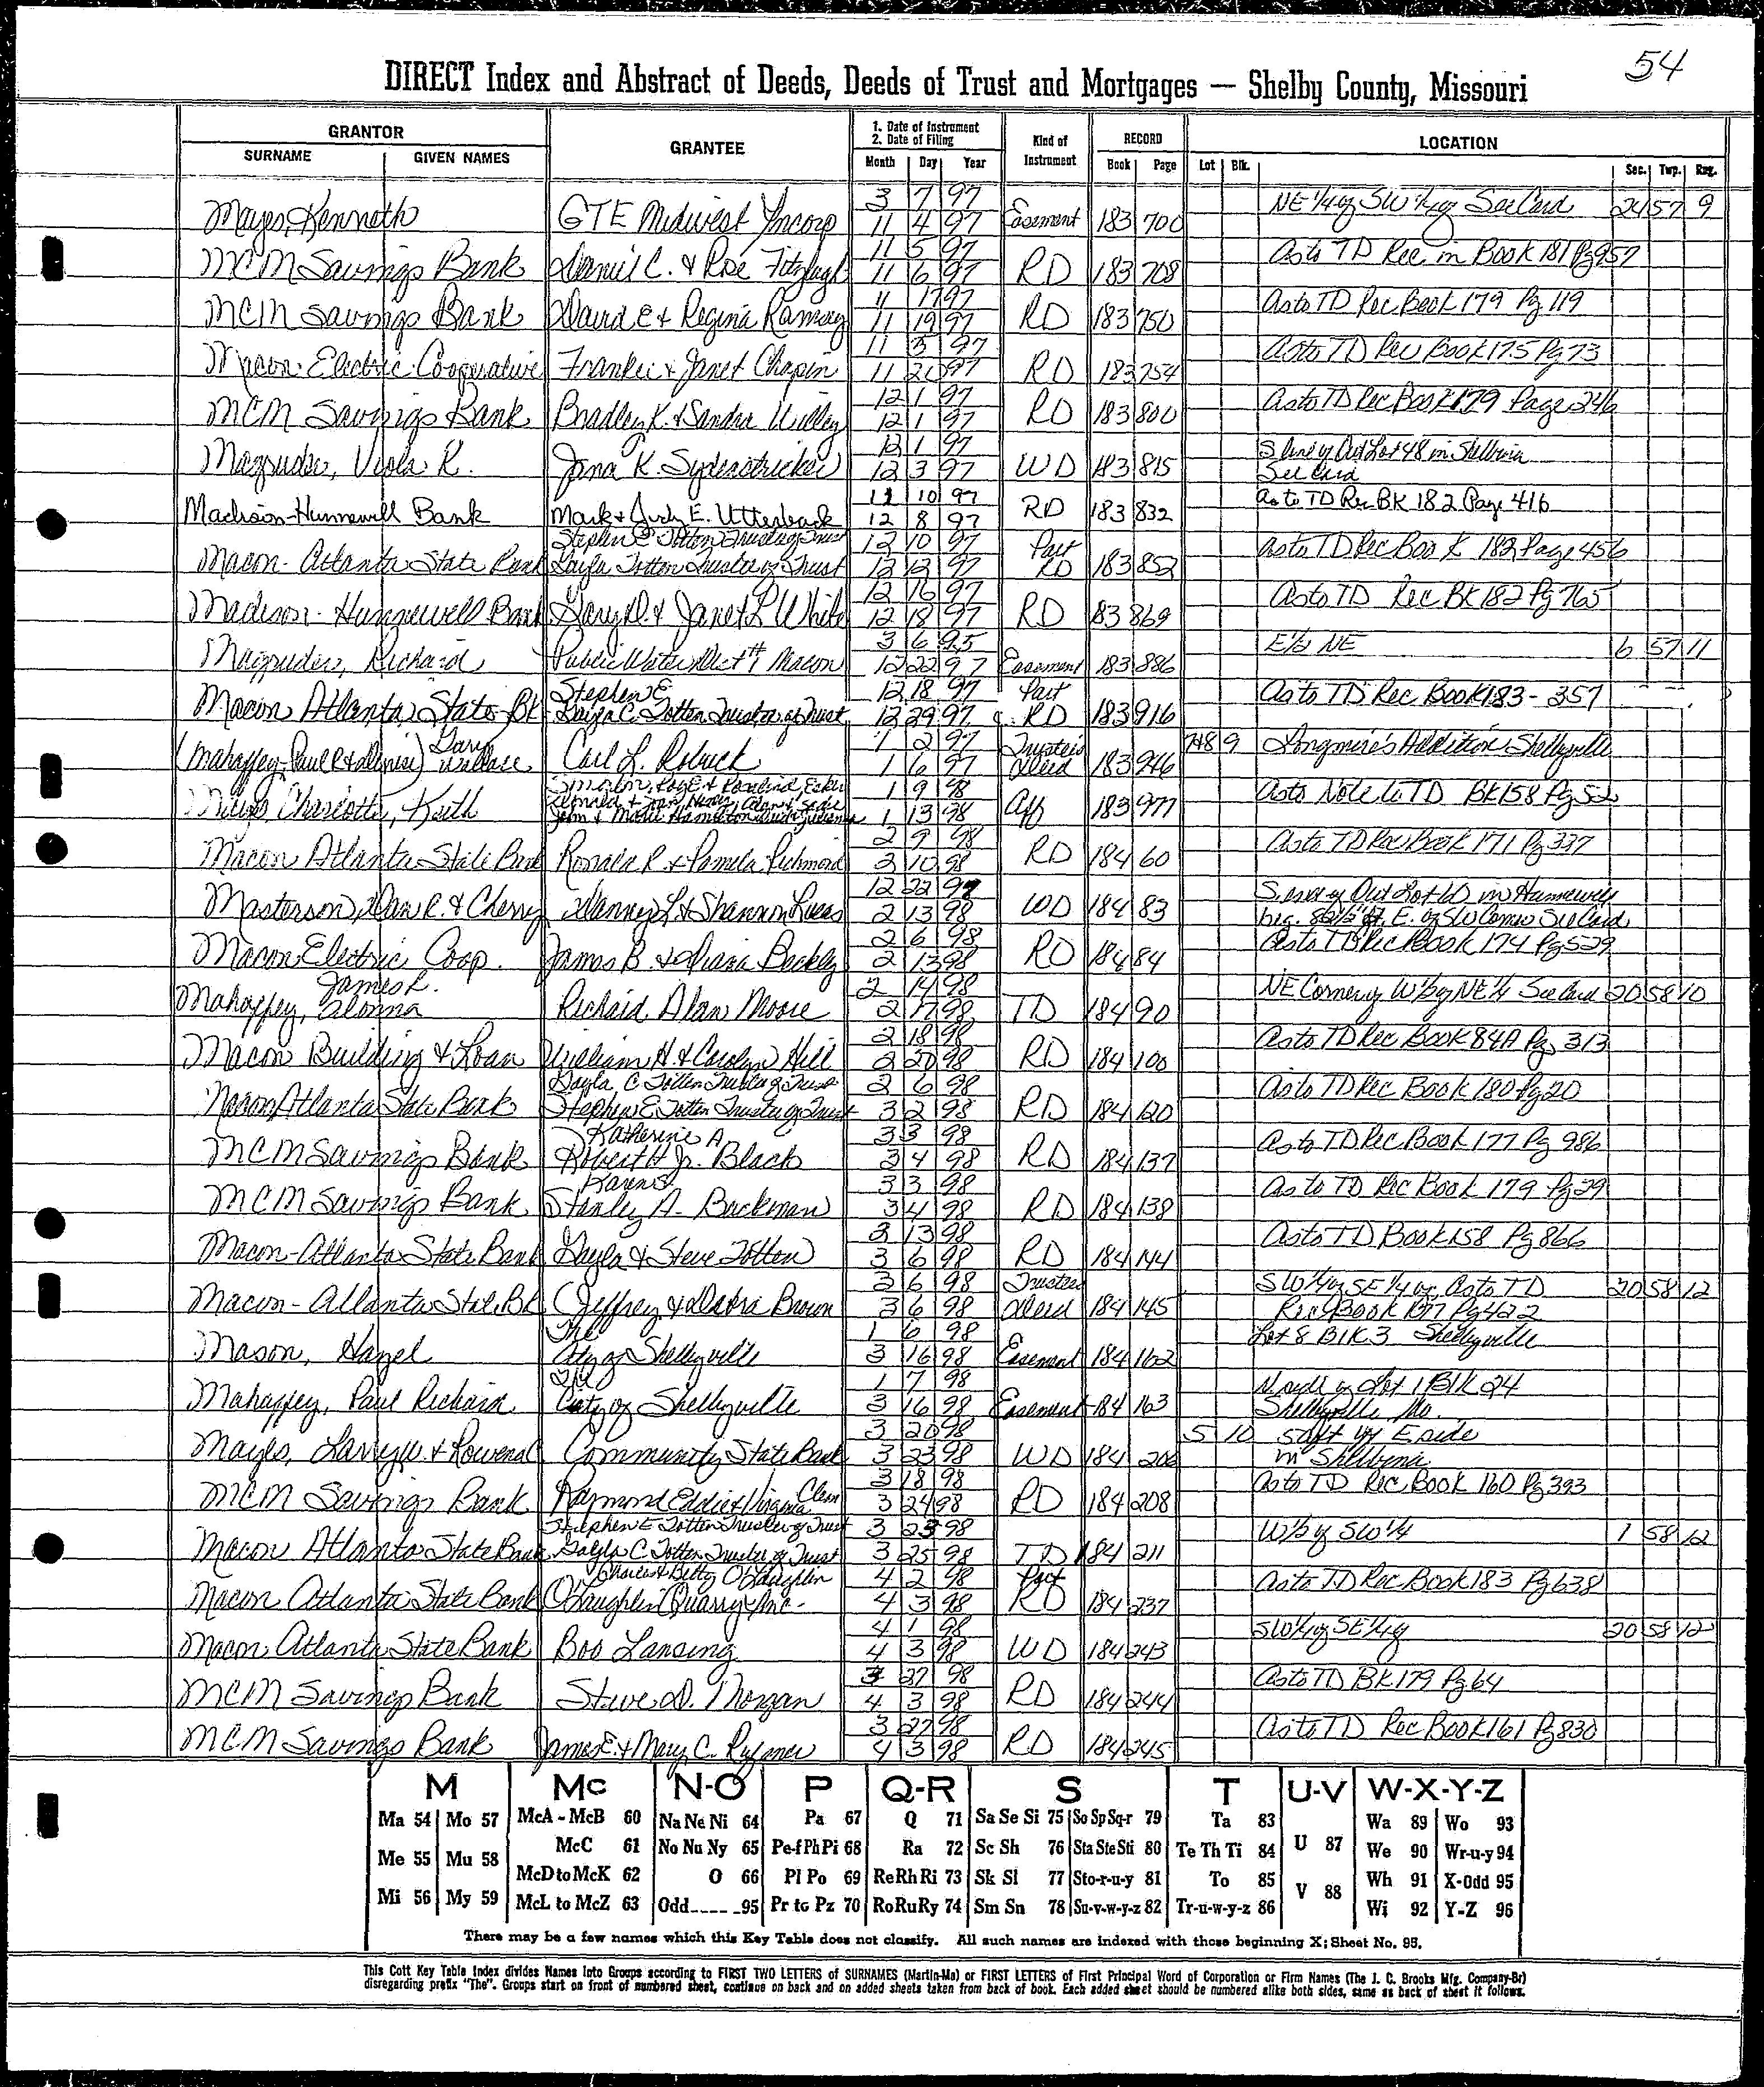 54
DIRECT Index and Abstract of Deeds, Deeds of Trust and Mortgages — Shelby County, Missouri
GRANTOR GRANTEE 1. Date of Instrument 2. Date of Filing Kind of Instrument RECORD LOCATION
SURNAME GIVEN NAMES Month Day Year Book Page Lot Blk. Sec. Twp. Rng.
3 7 97 NE 1/4 of SW 1/4 of See Card 24 57 9
Mayes, Kenneth GTE Midwest Incorp 11 4 97 Easement 183 700
11 5 97 As to TD Rec in Book 181 Pg 957
MCM Savings Bank Daniel C. & Rose Fitzhugh 11 6 97 RD 183 708
11 17 97 As to TD Rec Book 179 Pg 119
MCM Savings Bank David E & Regina Ramsey 11 19 97 RD 183 750
11 5 97 As to TD Rec Book 175 Pg 73
Macon Electric Cooperative & Janet Chapin 11 21 97 RD 183 754
12 1 97 As to TD Rec Book 179 Page 246
MCM Savings Bank Bradley K. & Sandra Willey 12 1 97 RD 183 800
12 1 97 S line of Out Lot 48 in Shelbina
Magruder, Viola R. Jana K. Sydenstricker 12 3 97 WD 183 815 See Card
11 10 97 As to TD Rec BK 182 Page 416
Madison-Hunnewell Bank Mark & Judy E. Utterback 12 8 97 RD 183 832
Stephen E Totten Trustee of Trust 12 10 97 Part As to TD Rec Book 182 Page 456
Macon-Atlanta State Bank Gayla Totten Trustee of Trust 12 12 97 RD 183 852
12 16 97 As to TD Rec BK 182 Pg 765
Madison-Hunnewell Bank Gary D. & Janet L White 12 18 97 RD 83 869
3 6 95 E 1/2 NE 6 57 11
Magruder, Richard Public Water Dist #1 Macon 12 22 97 Easement 183 886
Stephen E 12 18 97 Part As to TD Rec Book 183-357
Macon Atlanta State Bk Gayla C. Totten Trustee of Trust 12 29 97 RD 183 916
Gary 1 2 97 Trustee's 7&8 9 Longmire's Addition Shelbyville
(Mahaffey, Paul R & Denise) Wallace Carl L. Roback 1 6 97 Deed 183 946
1 9 98 As to Note to TD BK 158 Pg 52
Charlotte, Keith 1 13 98 Aff 183 977
2 9 98 As to TD Rec Book 171 Pg 337
Macon Atlanta State Bank Ronald R. & Pamela Richmond 2 10 98 RD 184 60
12 22 97 Out Lot 10 in Hunnewell
Masterson, Dan R. & Cherry Danny L & Shannon Lucas 2 13 98 WD 184 83 E. of SW Corner See Card
2 6 98 As to TD Rec Book 174 Pg 529
Macon Electric Coop. James B. & Diana Buckley 2 13 98 RD 184 84
James L. 2 14 98 NE Corner of W 1/2 of NE 1/4 See Card 20 58 10
Mahaffey, Alonna Richard Alan Moore 2 17 98 TD 184 90
2 18 98 As to TD Rec Book 84A Pg 313
Macon Building & Loan William H & Carolyn Hill 2 20 98 RD 184 100
Gayla C Totten Trustee of Trust 2 6 98 As to TD Rec Book 180 Pg 20
Macon Atlanta State Bank Stephen E Totten Trustee of Trust 3 2 98 RD 184 120
Katherine A 3 3 98 As to TD Rec Book 177 Pg 986
MCM Savings Bank Robert H Jr. Black 3 4 98 RD 184 137
Karen S 3 3 98 As to TD Rec Book 179 Pg 29
MCM Savings Bank Stanley A. Buckman 3 4 98 RD 184 138
3 13 98 As to TD Book 158 Pg 866
Macon-Atlanta State Bank Gayla & Steve Totten 3 6 98 RD 184 144
3 6 98 Trustee SW 1/4 of SE 1/4 of, As to TD 20 58 12
Macon-Atlanta State Bk Jeffrey & Debra Brown 3 6 98 Deed 184 145 Rec Book 177 Pg 422
The 1 6 98 Lot 8 Blk 3 Shelbyville
Mason, Hazel City of Shelbyville 3 16 98 Easement 184 162
The 1 7 98 Lot 1 Blk 24
Mahaffey, Paul Richard City of Shelbyville 3 16 98 Easement 184 163 Shelbyville Mo.
3 20 98 5 10 50ft of E side
Mayes, Larry W. & Rowena Community State Bank 3 23 98 WD 184 206 in Shelbina
3 18 98 As to TD Rec Book 160 Pg 393
MCM Savings Bank Raymond Eddie & Virginia Clem 3 24 98 RD 184 208
Stephen E Totten Trustee of Trust 3 23 98 W 1/2 of SW 1/4 1 58 12
Macon Atlanta State Bank Gayla C. Totten Trustee of Trust 3 25 98 TD 184 211
Charles & Betty O'Laughlin 4 2 98 Part As to TD Rec Book 183 Pg 638
Macon Atlanta State Bank O'Laughlin Quarry Inc. 4 3 98 RD 184 237
4 1 98 SW 1/4 of SE 1/4 of 20 58 12
Macon Atlanta State Bank Boo Lansing 4 3 98 WD 184 243
3 27 98 As to TD BK 179 Pg 64
MCM Savings Bank Steve D. Morgan 4 3 98 RD 184 244
3 27 98 As to TD Rec Book 161 Pg 830
MCM Savings Bank James E. & Mary C. 4 3 98 RD 184 245
M Mc N-O P Q-R S T U-V W-X-Y-Z
Ma 54 Mo 57 McA - McB 60 Na Ne Ni 64 Pa 67 Q 71 Sa Se Si 75 So Sp Sq-r 79 Ta 83 Wa 89 Wo 93
Me 55 Mu 58 McC 61 No Nu Ny 65 Pe-f Ph Pi 68 Ra 72 Sc Sh 76 Sta Ste Sti 80 Te Th Ti 84 U 87 We 90 Wr-u-y 94
McD to McK 62 O 66 Pl Po 69 Re Rh Ri 73 Sk Sl 77 Sto-r-u-y 81 To 85 Wh 91 X-Odd 95
Mi 56 My 59 McL to McZ 63 Odd 95 Pr to Pz 70 Ro Ru Ry 74 Sm Sn 78 Su-v-w-y-z 82 Tr-u-w-y-z 86 V 88 Wi 92 Y-Z 96
There may be a few names which this Key Table does not classify. All such names are indexed with those beginning X; Sheet No. 95.
This Cott Key Table Index divides Names Into Groups according to FIRST TWO LETTERS of SURNAMES (Martin-Ma) or FIRST LETTERS of First Principal Word of Corporation or Firm Names (The J. C. Brooks Mfg. Company-Br)
disregarding prefix "The". Groups start on front of numbered sheet, continue on back and on added sheets taken from back of book. Each added sheet should be numbered alike both sides, same as back of sheet it follows.